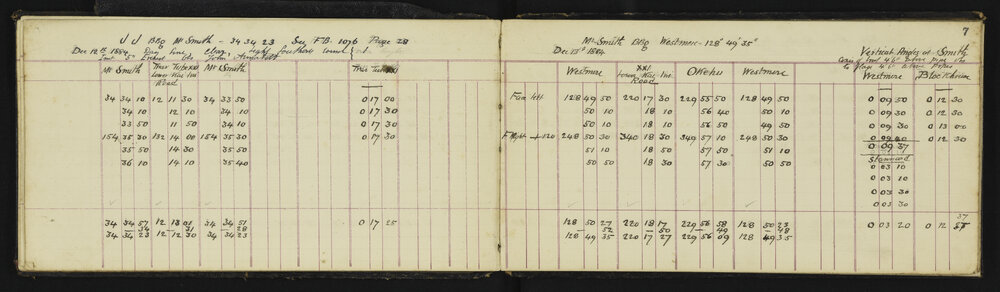 7
J J BRG Mt Smith - 34 34 23 See F.B. 1076 Page 28
Dec 12th 1884 Day fine, Clear, light southerly wind
John
Mt Smith True Mt Smith True
Road
34 34 10 12 11 30 34 33 50 0 17 00
34 10 12 10 34 10 0 17 30
33 50 11 50 34 10 0 17 30
154 35 30 132 14 00 154 35 30 0 17 30
35 50 14 30 35 50
36 10 14 10 35 40
34 34 57 12 13 01 34 34 51 0 17 25
34 31 28
34 34 23 12 12 30 34 34 23
Mt Smith BRG Westmere - 128° 49' 35"
Dec 1884
Vertical Angles at Smith
Westmere XXI Okehu Westmere Westmere
Road
Face left 128 49 50 220 17 30 229 55 50 128 49 50 0 09 50 0 12 30
50 10 18 10 56 40 50 10 0 09 30 0 12 30
50 10 18 10 56 50 49 50 0 09 30 0 13 00
F Right +120 248 50 30 340 18 30 349 57 10 248 50 30 0 09 40 0 12 30
51 10 18 50 57 50 51 10 0 09 37
50 50 18 30 57 30 50 50
0 03 10
0 03 10
0 03 30
0 03 30
128 50 27 220 18 17 229 56 58 128 50 23 0 03 20 0 12 37
52 50 49 48
128 49 35 220 17 27 229 56 09 128 49 35